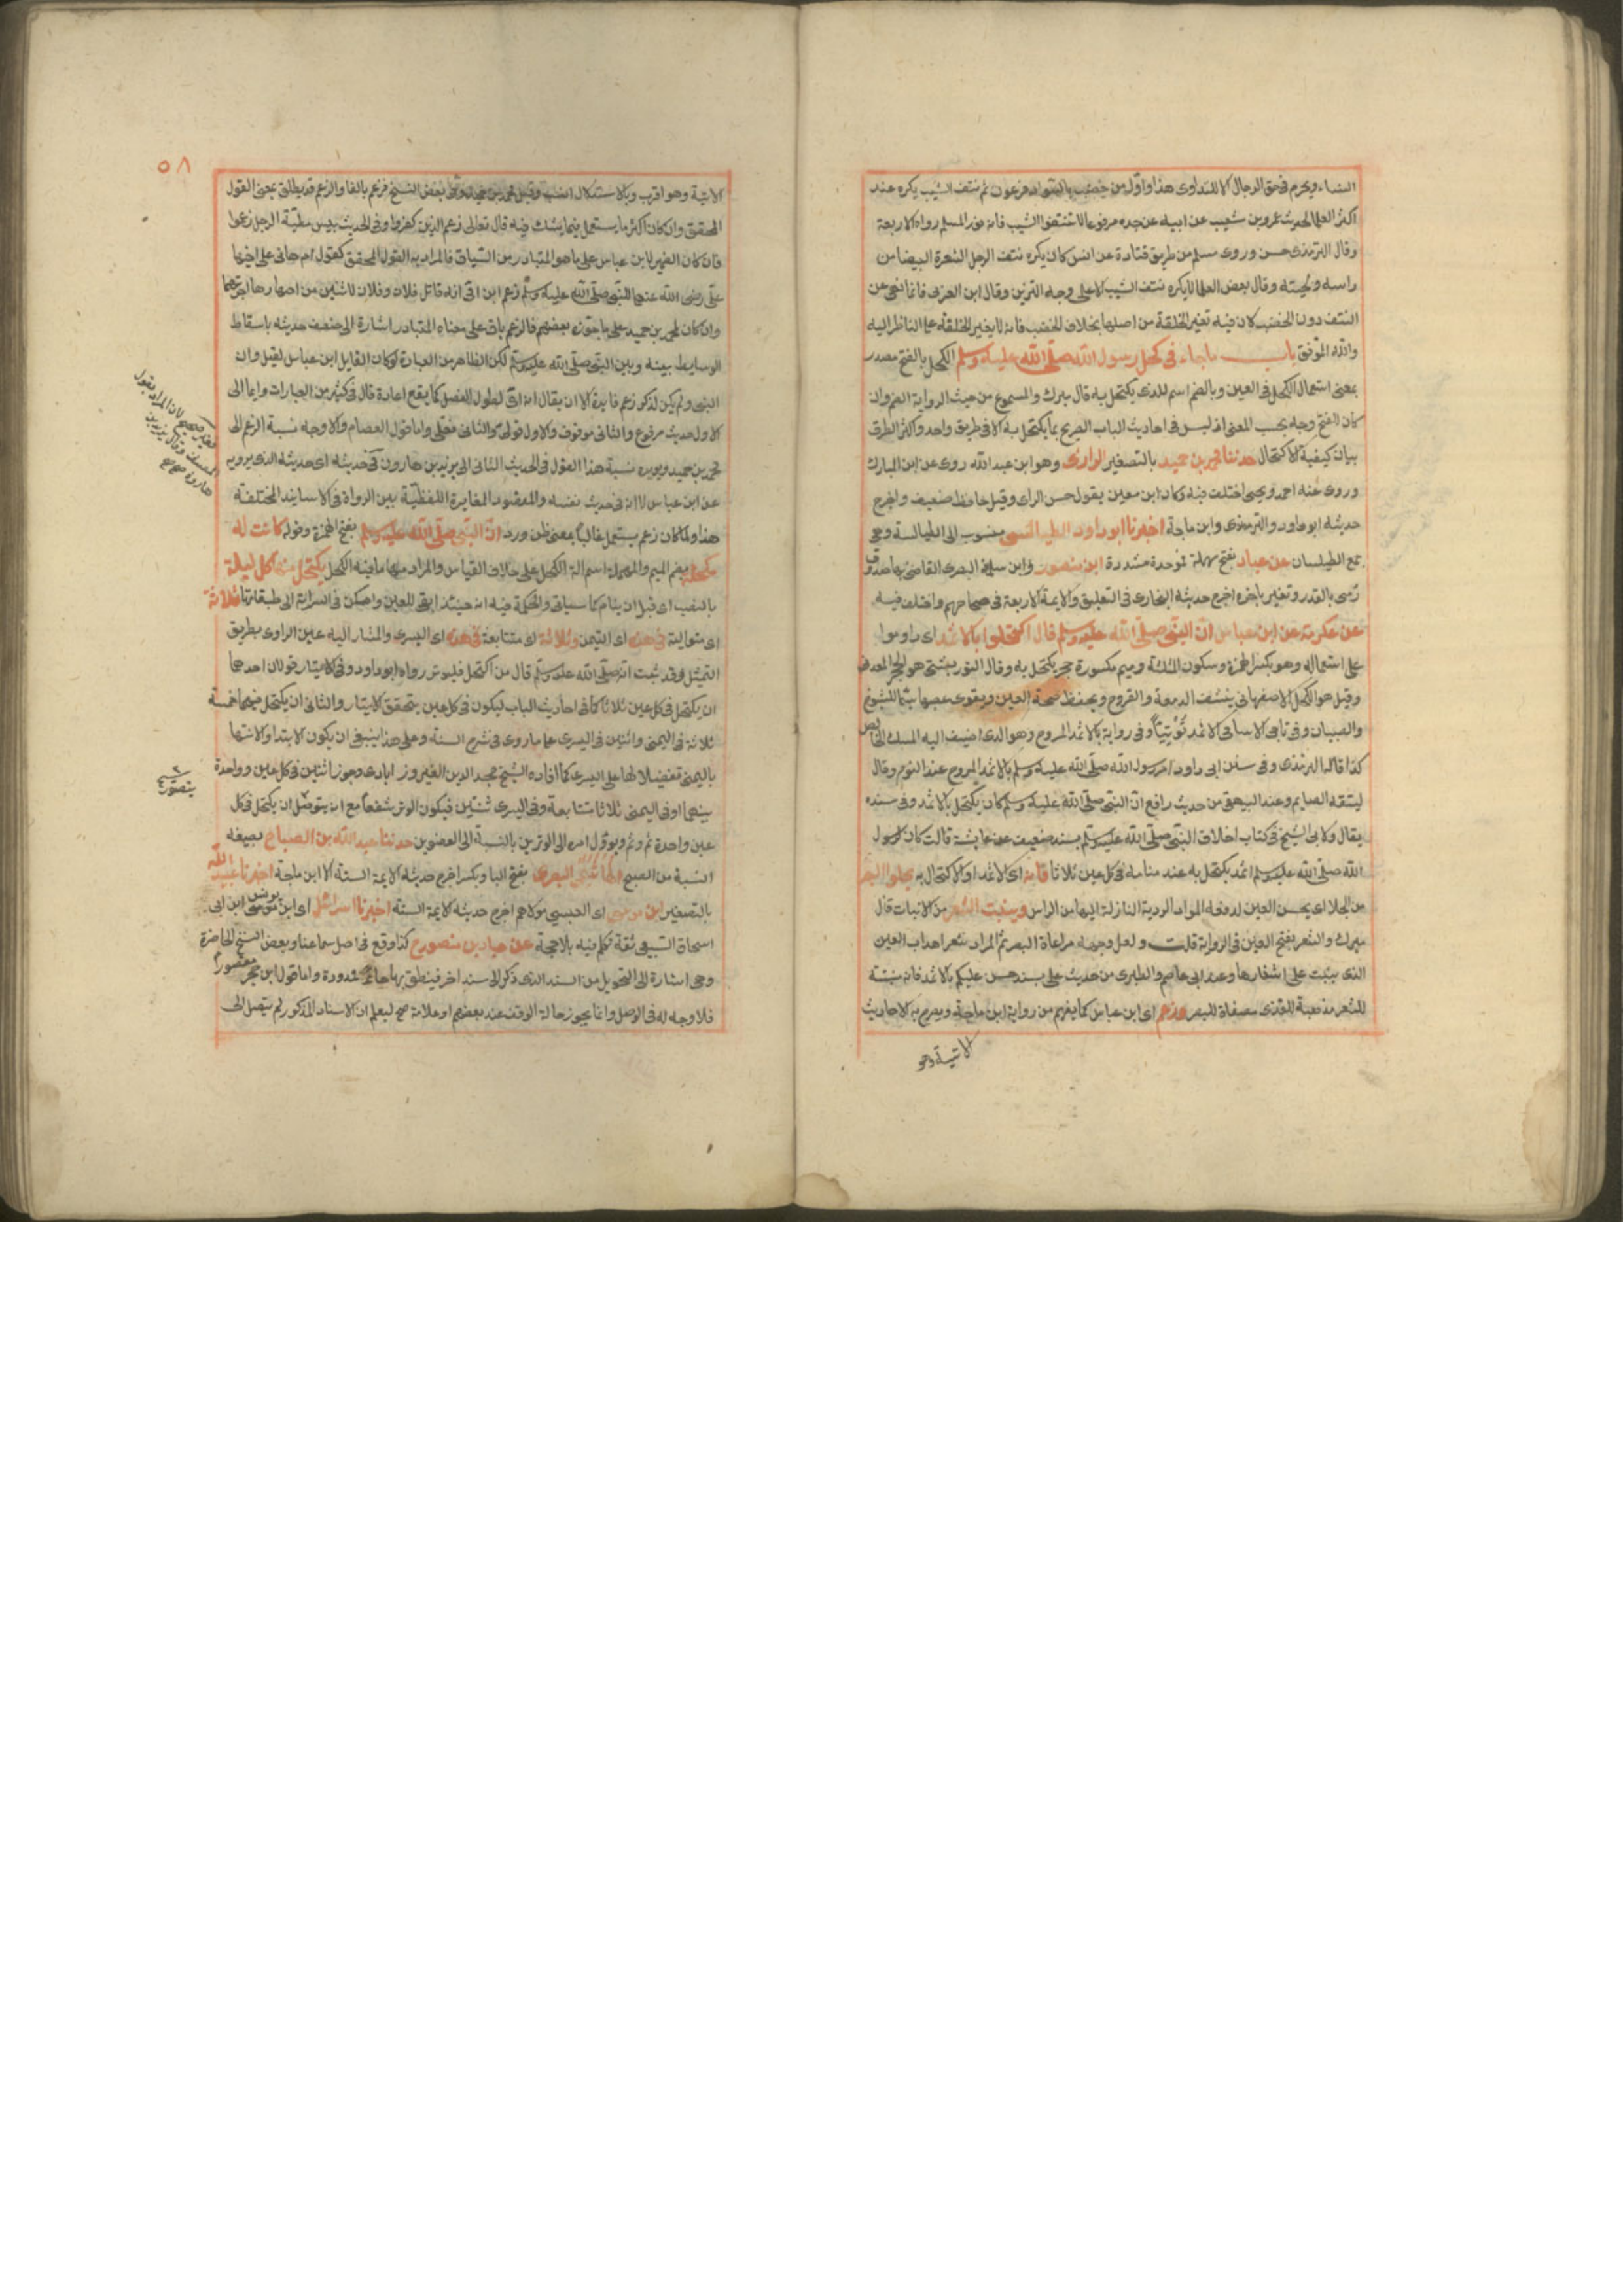 النساء ويحرم في حق الرجال الا للتداوى هذا واول من خضب بالسواد فرعون ثم نتف الشيب يكره عند
اكثر العلما لحديث عمرو بن شعيب عن ابيه عن جده مرفوعا لا تنتفوا الشيب فانه نور المسلم رواه الاربعة
وقال الترمذى حسن وروى مسلم من طريق قتادة عن انس كان يكره نتف الرجل الشعرة البيضا من
راسه ولحيته وقال بعض العلما لا يكره نتف الشيب الا على وجه التزين وقال ابن العربى فانما نهى عن
النتف دون الخضب لان فيه تغيير الخلقة من اصلها بخلاف الخضب فانه لا يغير الخلقة على الناظر اليه
والله الموفق باب ماجاء فى كحل رسول الله صلى الله عليه وسلم الكحل بالفتح مصدر
بمعنى استعمال الكحل فى العين وبالضم اسم للذى يكتحل به قال ميرك والمسموع من حيث الرواية الضم وان
كان للفتح وجه بحسب المعنى اذ ليس فى احاديث الباب الصريح بما يكتحل به الا فى طريق واحد واكثر الطرق
بيان كيفية الاكتحال حدثنا محمد بن حميد بالتصغير الرازى وهو ابن عبد الله روى عن ابن المبارك
وروى عنه احمد ويحيى اختلف فيه وكان ابن معين يقول حسن الراى وقيل حافظ ضعيف واخرج
حديثه ابو داود والترمذى وابن ماجة اخبرنا ابو داود الطيالسى منسوب الى الطيالسة وهى
جمع الطيلسان عن عباد بفتح مهملة فموحدة مشددة ابن منصور وابن سلمة البصرى القاضى بها صدوق
رمى بالقدر وتغير باخره اخرج حديثه البخارى فى التعليق والايمة الاربعة فى صحاحهم واختلف فيه
عن عكرمة عن ابن عباس ان النبى صلى الله عليه وسلم قال اكتحلوا بالاثمد اى داوموا
على استعماله وهو بكسر الهمزة وسكون المثلثة وميم مكسورة حجر يكتحل به وقال التوربشتى هو الحجر المعدنى
وقيل هو الكحل الاصفهانى ينشف الدمعة والقروح ويحفظ صحة العين ويقوى عصبها سيما للشيوخ
والصبيان وفى تاجى الاسامى الاثمد توتيتا وفى رواية بالاثمد المروح وهو الذى اضيف اليه المسك الخالص
كذا قاله الترمذى وفى سنن ابى داود امر رسول الله صلى الله عليه وسلم بالاثمد المروح عند النوم وقال
ليتقه الصايم وعند البيهقى من حديث رافع ان النبى صلى الله عليه وسلم كان يكتحل بالاثمد وفى سنده
يقال ولابى الشيخ فى كتاب اخلاق النبى صلى الله عليه وسلم بسند ضعيف عن عايشة قالت كان لرسول
الله صلى الله عليه وسلم اثمد يكتحل به عند منامه فى كل عين ثلاثا فانه اى الاثمد او الاكتحال به يجلو البصر
من الجلا اى يحسن العين لدفعه المواد الردية النازلة اليها من الراس وينبت الشعر من الانبات قال
ميرك والشعر بفتح العين فى الرواية قلت ولعل وجهه مراعاة البصر ثم المراد شعر اهداب العين
الذى ينبت على اشفارها وعند ابى عاصم والطبرى من حديث على بسند حسن عليكم بالاثمد فانه منبتة
للشعر مذهبة للقذى مصفاة للبصر وزعم اى ابن عباس كما يفهم من رواية ابن ماجة ويصرح به الاحاديث
الاتية وهو
٥٨
الاتية وهو اقرب وبالاستدلال انسب وقيل محمد بن حميد وفى بعض النسخ فزعم بالفا والزعم قد يطلق بمعنى القول
المحقق وان كان اكثر ما يستعمل فيما يشك فيه قال تعالى زعم الذين كفروا وفى الحديث بيس مطية الرجل زعموا
فان كان الضمير لابن عباس على ما هو المتبادر من السياق فالمراد به القول المحقق كقول ام هانى على اخيها
على رضى الله عنهما للنبى صلى الله عليه وسلم زعم ابن امى انه قاتل فلان وفلان لاثنين من اصهارها اجرتهما
وان كان لمحمد بن حميد على ما جوزه بعضهم فالزعم باق على معناه المتبادر اشارة الى ضعف حديثه باسقاط
الوسايط بينه وبين النبى صلى الله عليه وسلم لكن الظاهر من العبارة لو كان القايل ابن عباس لقيل وان
النبى ولم يكن لذكر زعم فايدة الا ان يقال انه اتى لطول الفصل كما يقع اعادة قال فى كثير من العبارات وايما الى
الاول حديث مرفوع والثانى موقوف والاول قولى والثانى فعلى واما قول العصام والاوجه نسبة الزعم الى
محمد بن حميد ويويده نسبة هذا القول فى الحديث الثانى الى يزيد بن هارون فى حديثه اى حديثه الذى يرويه
عن ابن عباس لا انه فى حديث نفسه والمقصود المغايرة اللفظية بين الرواة فى الاسانيد المختلفة
هذا ولما كان زعم يستعمل غالبا بمعنى ظن ورد ان النبى صلى الله عليه وسلم بفتح الهمزة وقوله كانت له
مكحلة بضم الميم والمهملة اسم الة الكحل على خلاف القياس والمراد منها ما فيه الكحل يكتحل منها كل ليلة
بالنصب اى قبل ان ينام كما سياتى والحكمة فيه انه حينئذ ابقى للعين وامكن فى السراية الى طبقاتها ثلاثة
اى متوالية فى هذه اى اليمين وثلاثة اى متتابعة فى هذه اى اليسرى والمشار اليه عين الراوى بطريق
التمثيل وقد ثبت انه صلى الله عليه وسلم قال من اكتحل فليوتر رواه ابو داود وفى الايتار قولان احدهما
ان يكتحل فى كل عين ثلاثا كما فى احاديث الباب ليكون فى كل عين يتحقق الايتار والثانى ان يكتحل فيهما خمسة
ثلاثة فى اليمنى واثنين فى اليسرى على ما روى فى شرح السنة وعلى هذا ينبغى ان يكون الابتدا والانتها
باليمنى تفضيلا لها على اليسرى كما افاده الشيخ مجد الدين الفيروزابادى وجوز اثنين فى كل عين وواحدة
بينهما او فى اليمنى ثلاثا متتابعة وفى اليسرى ثنتين فيكون الوتر شفعا مع انه يتوصل ان يكتحل فى كل
عين واحدة ثم وثم ويوول امره الى الوترين بالنسبة الى العضوين حدثنا عبد الله بن الصباح بصيغة
النسبة من الصبح الهاشمى البصرى بفتح البا وبكسر اخرج حديثه الايمة الستة الا ابن ماجة اخبرنا عبيد الله
بالتصغير ابن موسى اى العبسى مولاهم اخرج حديثه الايمة الستة اخبرنا اسرائيل اى ابن يونس ابن ابى
اسحاق السبيعى ثقة تكلم فيه بلا حجة عن عباد بن منصور ح كذا وقع فى اصل سماعنا وبعض النسخ الحاضرة
وهى اشارة الى التحويل من السند الذى ذكر الى سند اخر فينطق بها حا ممدودة واما قول ابن حجر مقصورا
فلا وجه له فى الوصل وانما يجوز حالة الوقف عند بعضهم او علامة صح ليعلم ان الاسناد المذكور لم يتصل الى